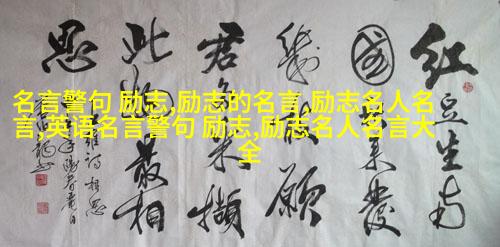 名言警句 励志,励志的名言,励志名人名
言,英语名言警句 励志,励志名人名言大
全
红豆生南
國春来發
幾枝願
君多采擷
此物最相
思